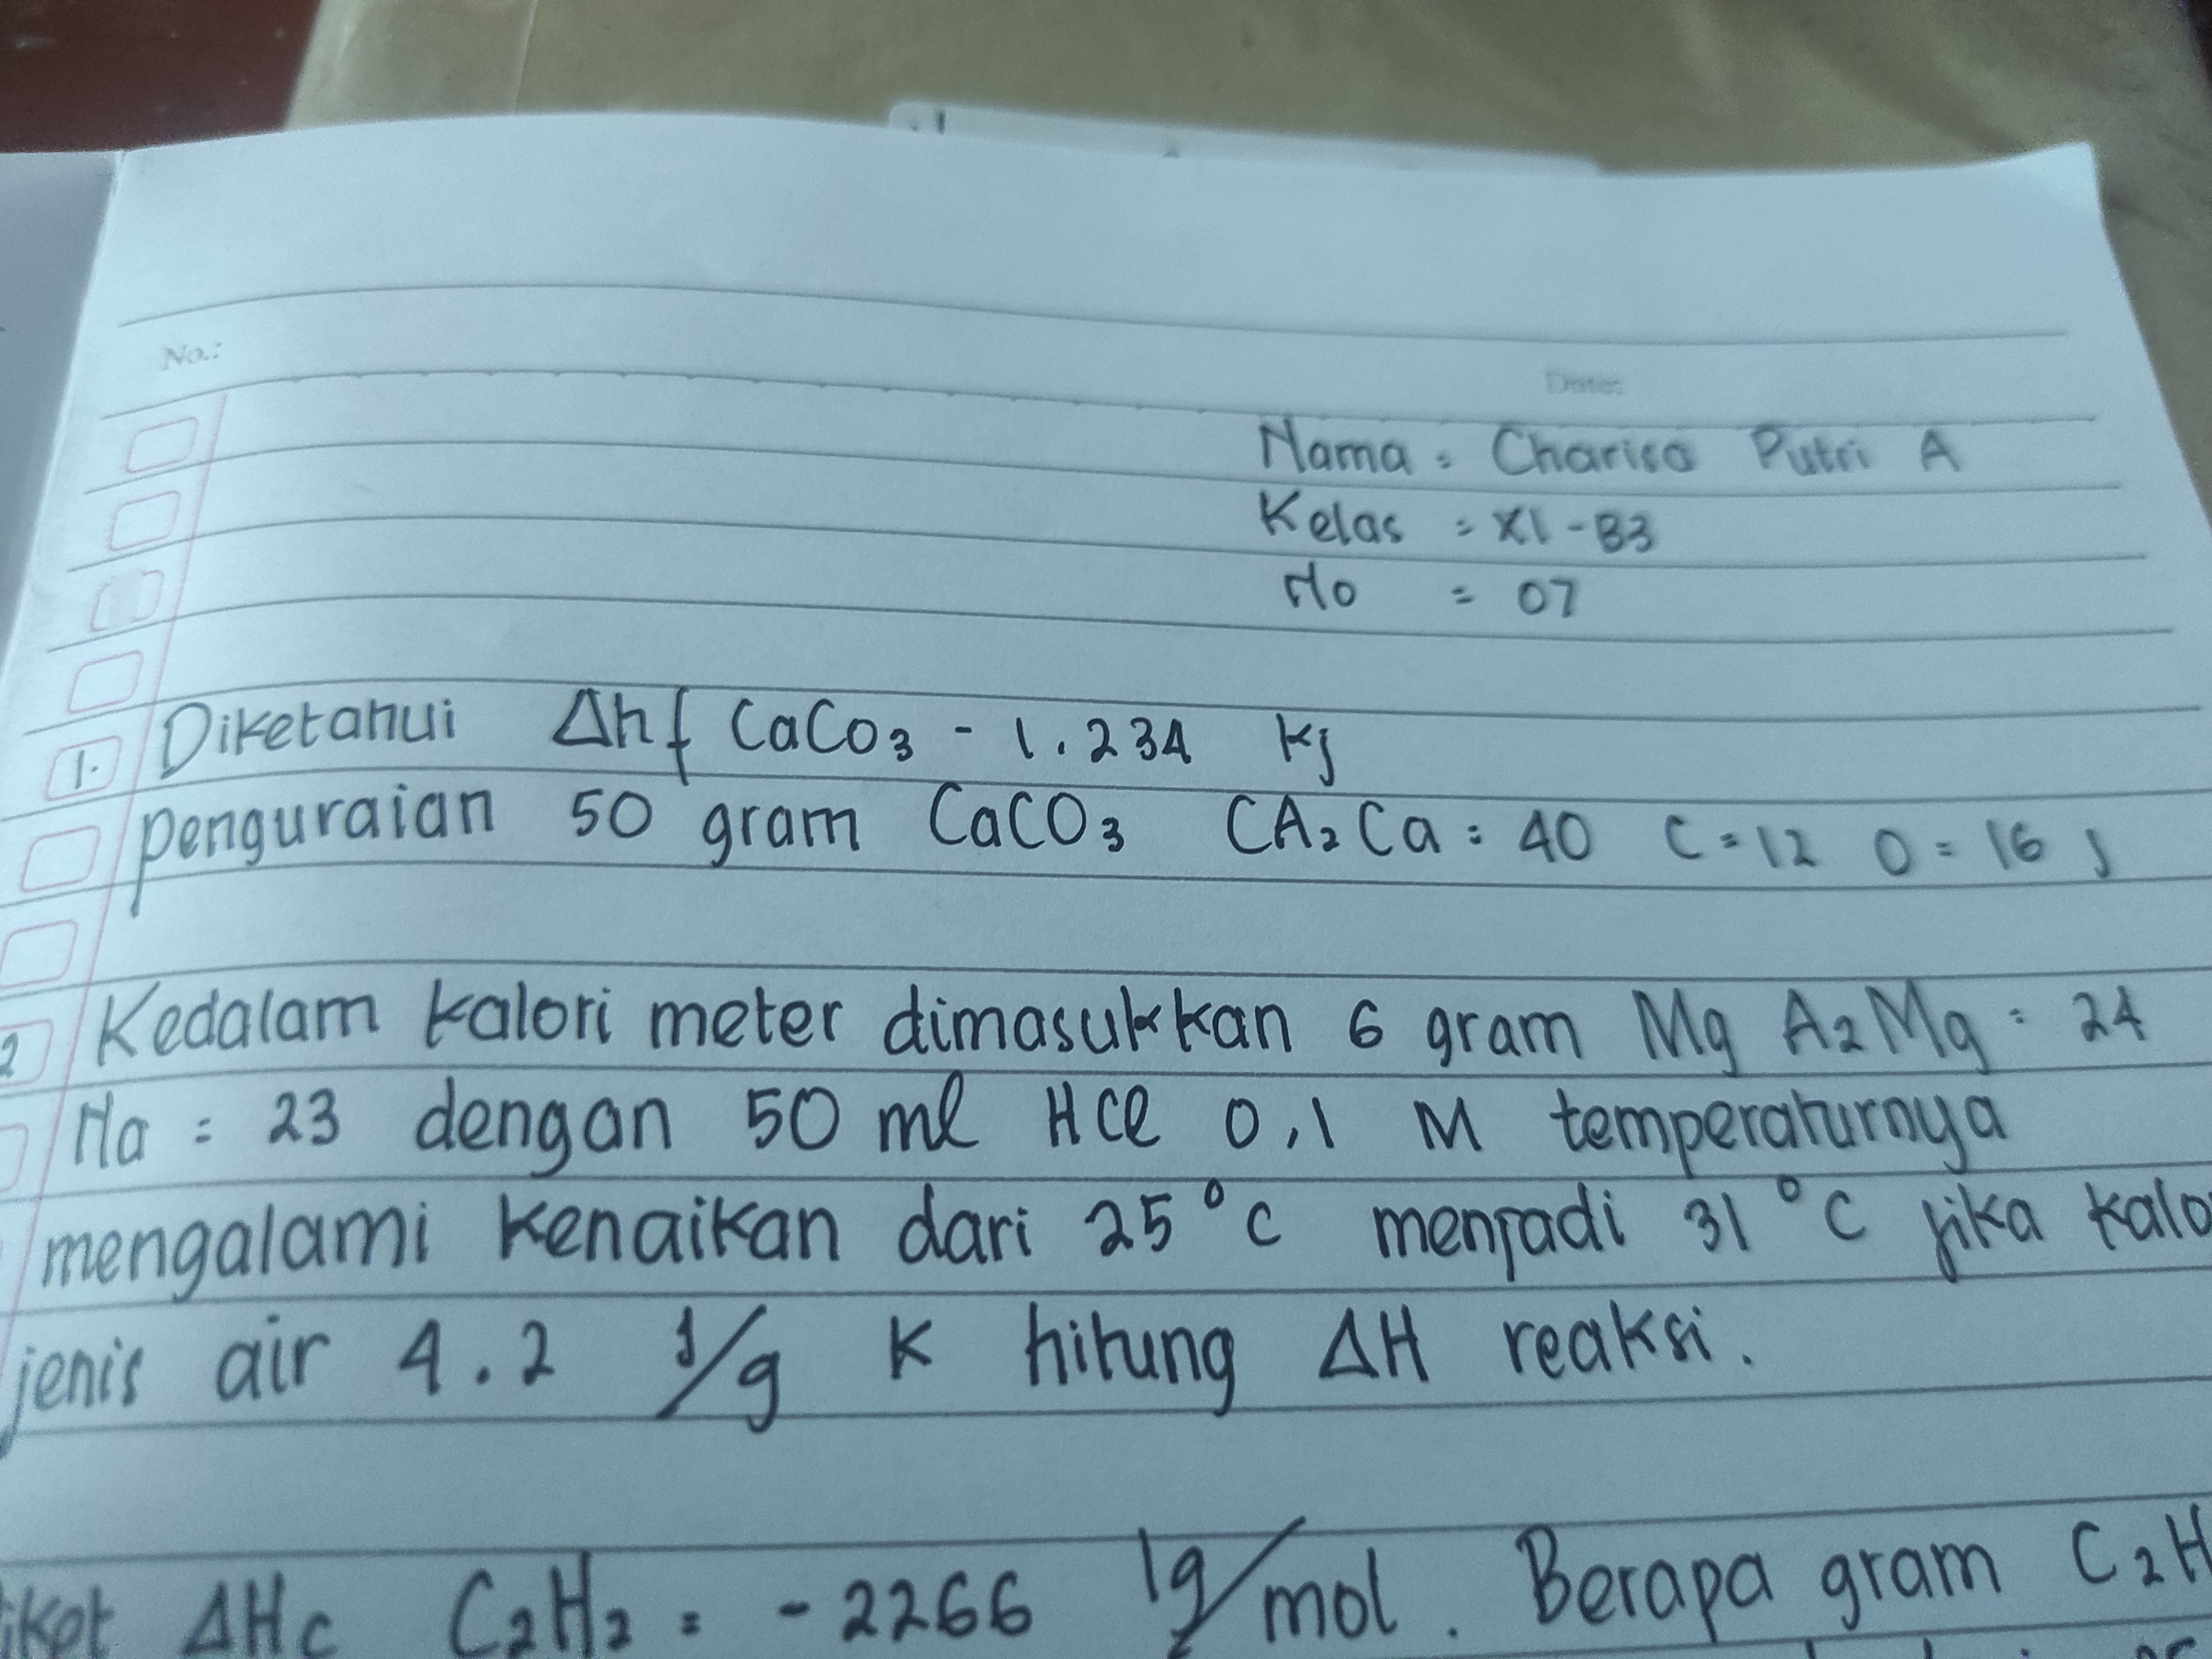 No.:
Date:
Nama = Charisa Putri A
Kelas = XI-B3
No = 07
1. Diketahui Δhf CaCo3 - 1.234 kj
penguraian 50 gram CaCO3 CA2Ca = 40 C = 12 O = 16 )
2 Kedalam kalori meter dimasukkan 6 gram Mg A2Mg = 24
Na = 23 dengan 50 ml HCl 0,1 M temperaturnya
mengalami kenaikan dari 25°C menjadi 31°C jika kalo
jenis air 4.2 J/g K hitung ΔH reaksi.
iket ΔHc C2H2 = -2266 kg/mol. Berapa gram C2H